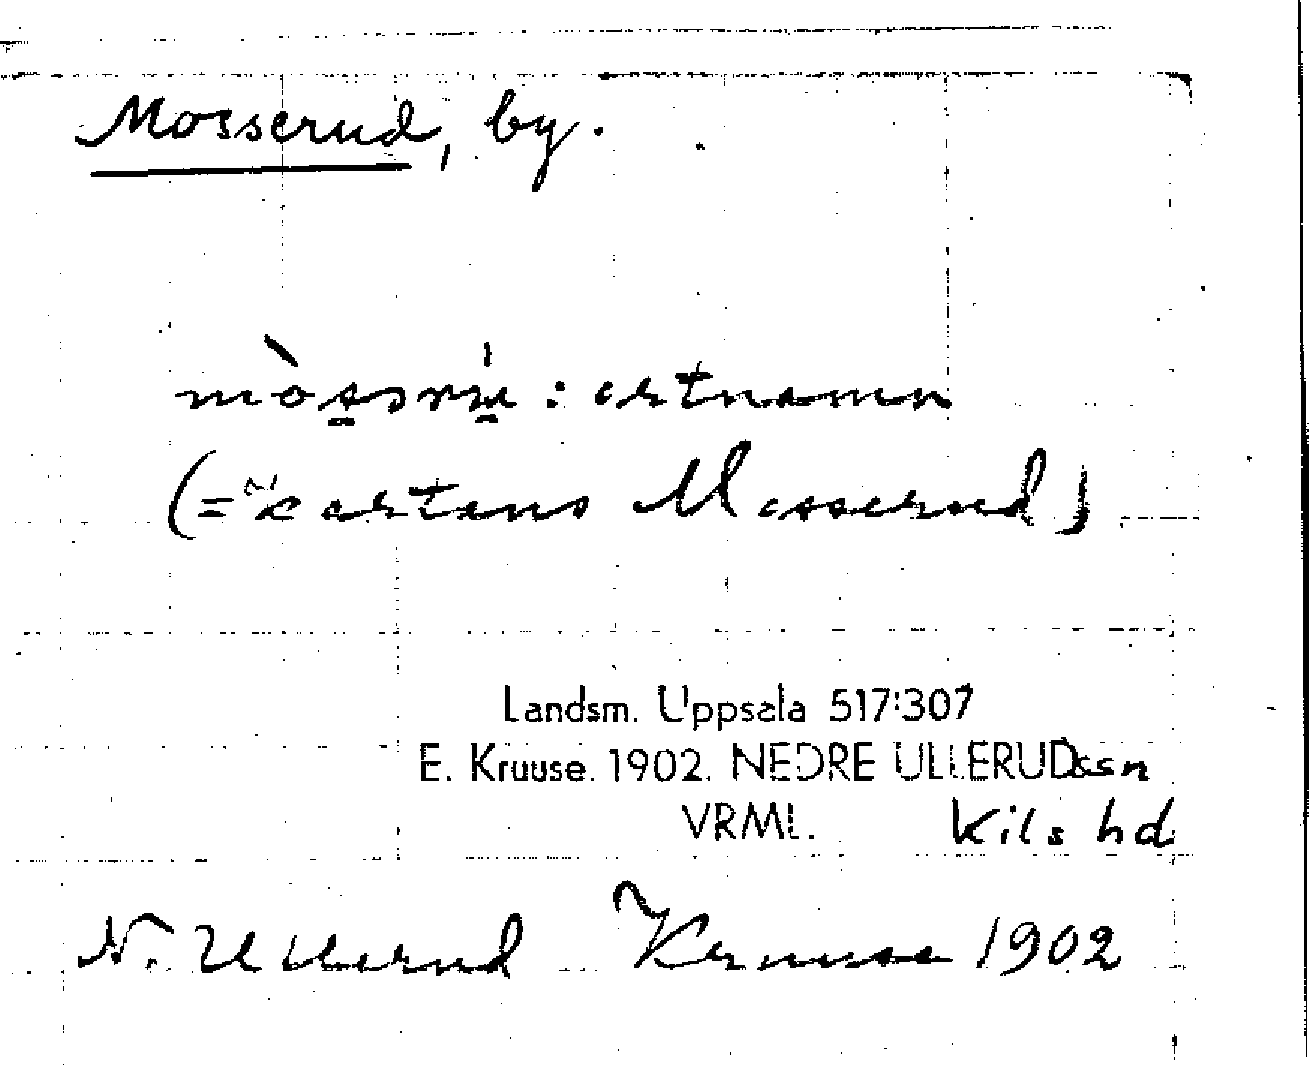 Mosserud, by.
mòssrú : ortnamn
(= kartans Mosserud)
Landsm. Uppsala 517:307
E. Kruuse. 1902. NEDRE ULLERUDs sn
VRML. Kils hd
N. Ullerud Kruuse 1902